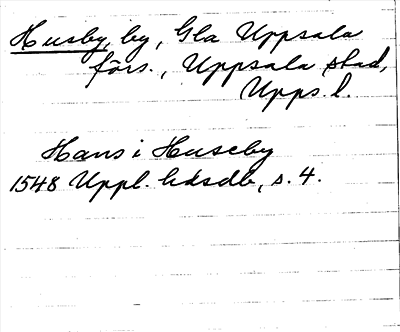 Husby, by, Gla Uppsala
förs., Uppsala stad,
Upps. l.
Hans i Huseby
1548 Uppl. hdsdb, s. 4.